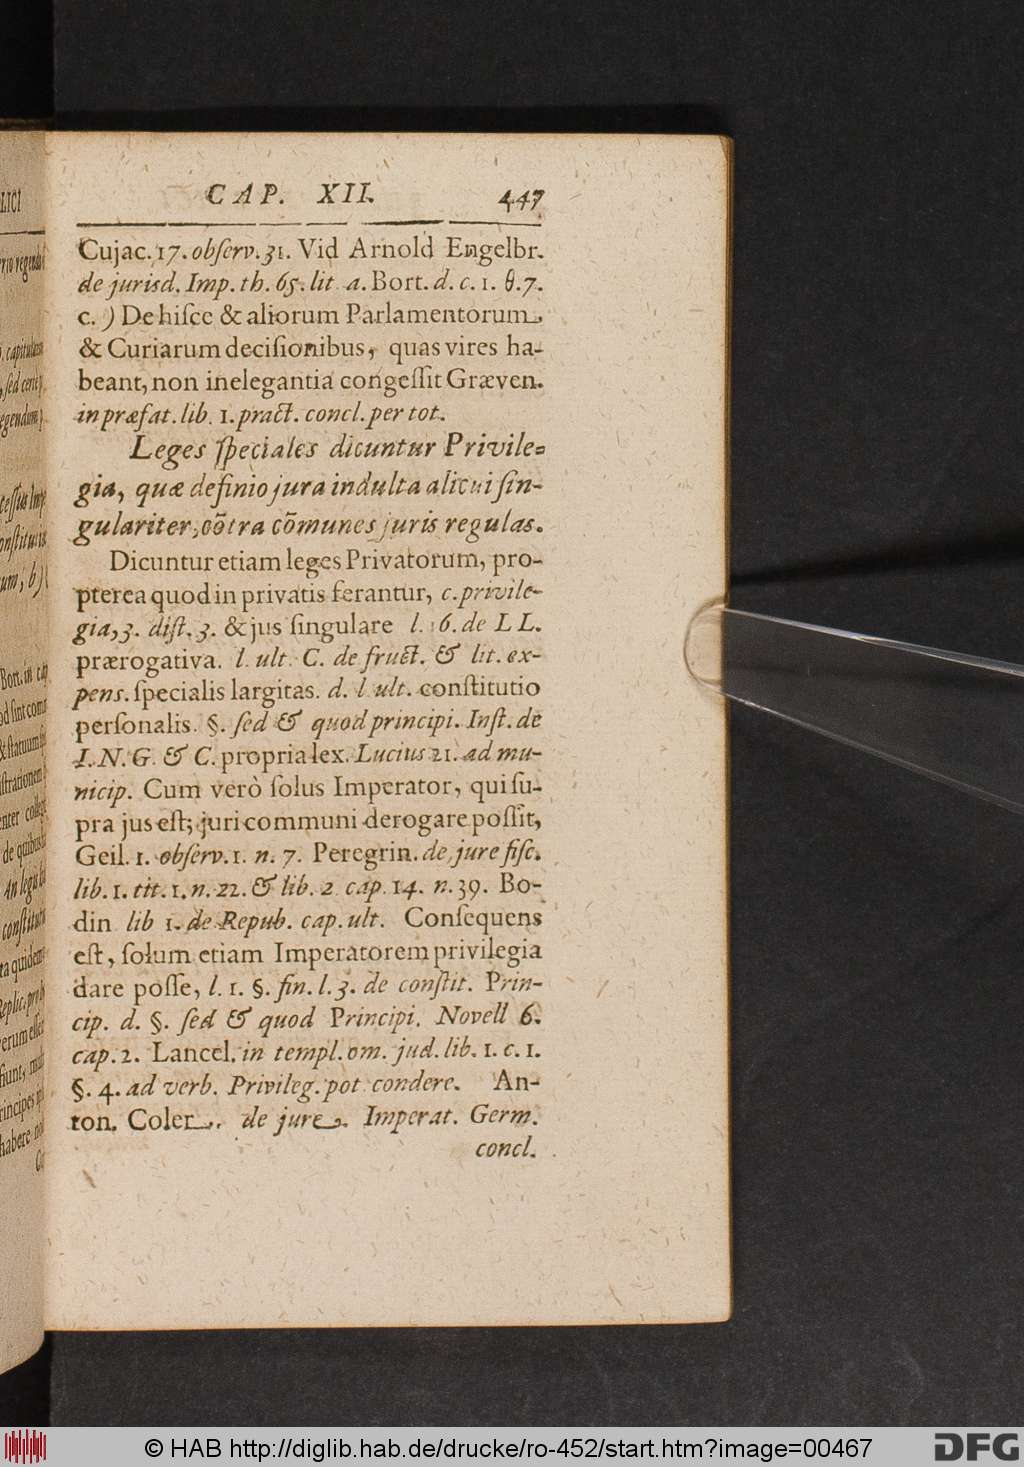 CAP. XII. 447
Cujac. 17. obſerv. 31. Vid Arnold Engelbr.
de jurisd. Imp. th. 65. lit a. Bort. d. c. 1. θ. 7.
c. ) De hiſce & aliorum Parlamentorum
& Curiarum deciſionibus, quas vires ha-
beant, non inelegantia congeſſit Græven.
in præfat. lib. 1. pract. concl. per tot.
Leges ſpeciales dicuntur Privile-
gia, quæ definio jura indulta alicui ſin-
gulariter, cõtra cõmunes juris regulas.
Dicuntur etiam leges Privatorum, pro-
pterea quod in privatis ferantur, c. privile-
gia, 3. diſt. 3. & jus ſingulare l. 16. de LL.
prærogativa. l. ult. C. de fruct. & lit. ex-
pens. ſpecialis largitas. d. l ult. conſtitutio
perſonalis. §. ſed & quod principi. Inſt. de
I. N. G. & C. propria lex. Lucius 21. ad mu-
nicip. Cum verò ſolus Imperator, qui ſu-
pra jus eſt, juri communi derogare poſſit,
Geil. 1. obſerv. 1. n. 7. Peregrin. de jure fiſc.
lib. 1. tit. 1. n. 22. & lib. 2 cap. 14. n. 39. Bo-
din lib 1. de Repub. cap. ult. Conſequens
eſt, ſolum etiam Imperatorem privilegia
dare poſſe, l. 1. §. fin. l. 3. de conſtit. Prin-
cip. d. §. ſed & quod Principi. Novell 6.
cap. 2. Lancel. in templ. om. jud. lib. 1. c. 1.
§. 4. ad verb. Privileg. pot condere. An-
ton. Coler. de jure. Imperat. Germ.
concl.
© HAB http://diglib.hab.de/drucke/ro-452/start.htm?image=00467
DFG